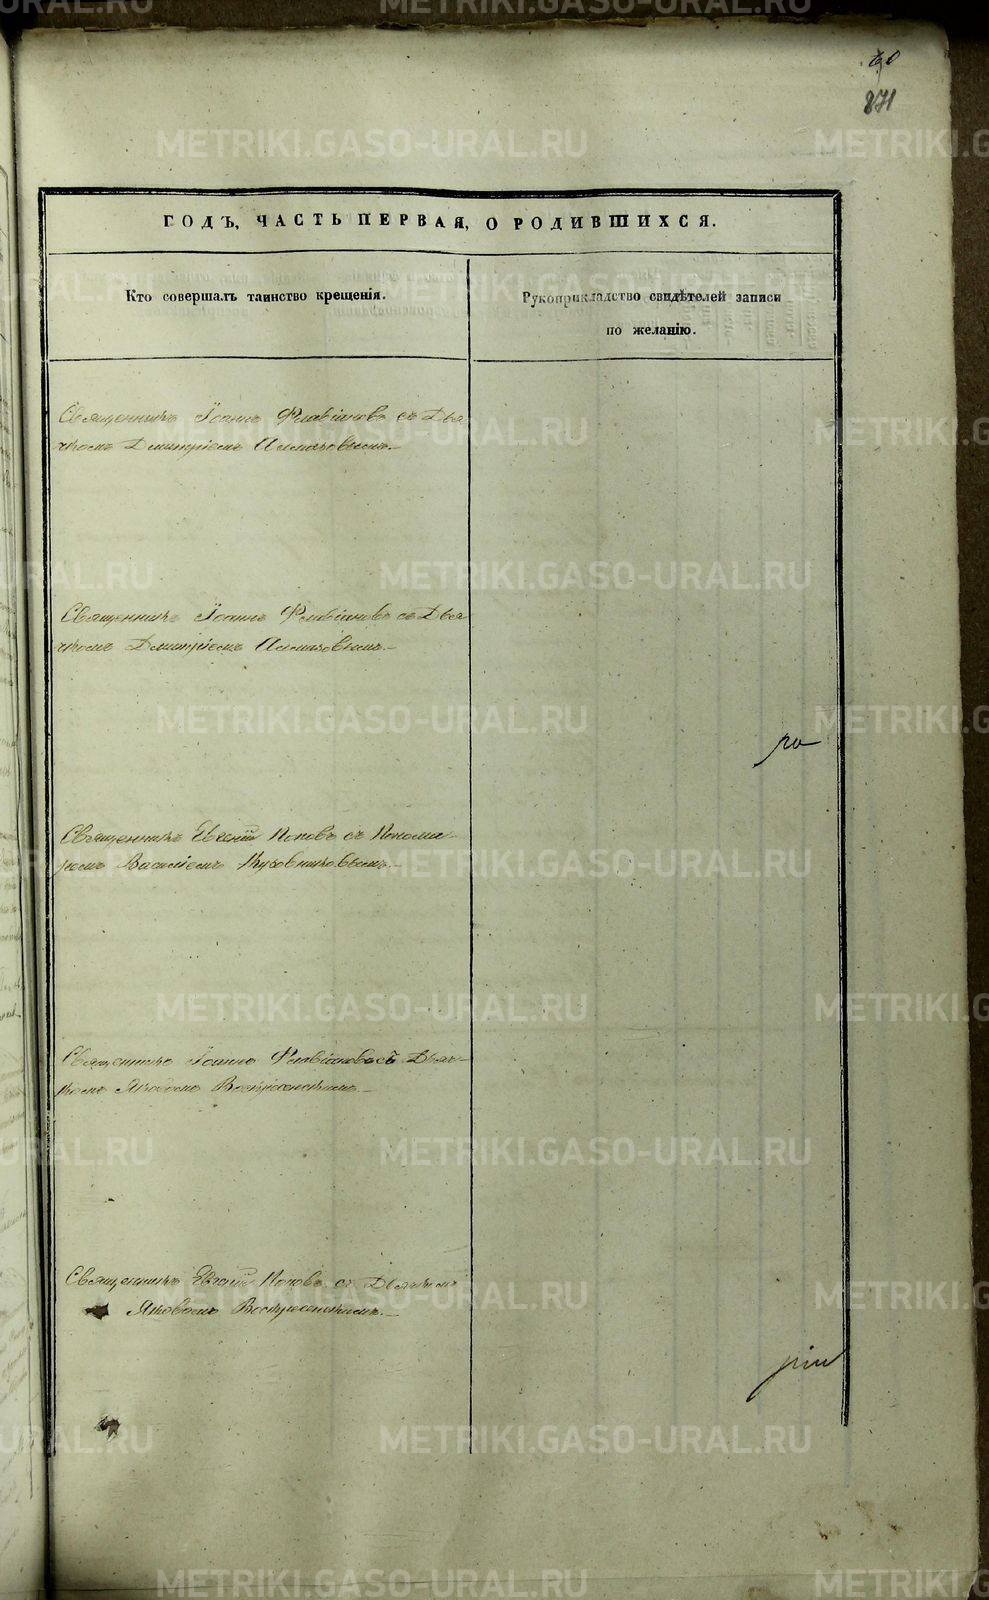 60
871
ГОДЪ, ЧАСТЬ ПЕРВАЯ, О РОДИВШИХСЯ.
Кто совершалъ таинство крещенія.
Рукоприкладство свидѣтелей записи
по желанію.
Священникъ Іоаннъ Флавіановъ съ Дья-
чкомъ Дмитріемъ Алмазовымъ.
Священникъ Іоаннъ Флавіановъ съ Дья-
чкомъ Дмитріемъ Алмазовымъ.
Священникъ Евгеній Поповъ съ Понома-
ремъ Василіемъ
Священникъ Іоаннъ Флавіановъ съ Дьяч-
комъ Яковомъ Воскресенскимъ.
Священникъ Евгеній Поповъ съ Дьячкомъ
Яковомъ Воскресенскимъ.
METRIKI.GASO-URAL.RU